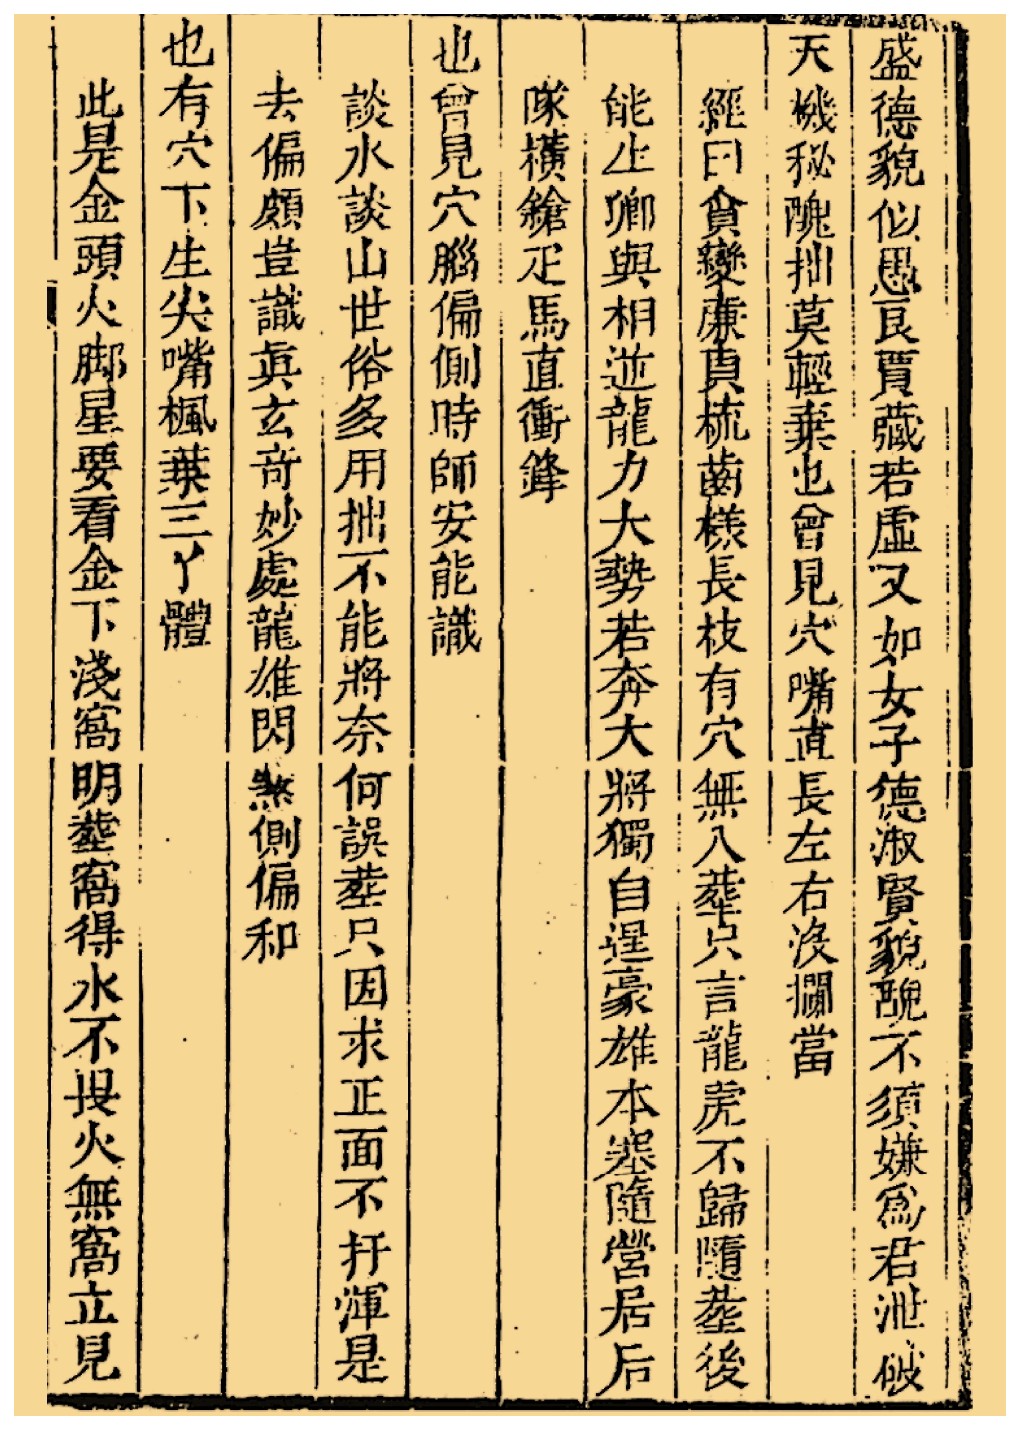 盛德貌似愚良賈藏若虛又如女子德淑賢貌醜不須嫌爲君泄破
天機秘醜拙莫輕棄也曾見穴嘴直長左右沒攔當
經曰貪變廉貞梳齒樣長枝有穴無人葬只言龍虎不歸隨塟後
能生鄉與相逆龍力大勢若奔大將獨自逞豪雄本塞隨營居后
隊橫鎗疋馬直衝鋒
也曾見穴腦偏側時師安能識
談水談山世俗多用拙不能將奈何誤塟只因求正面不扦渾是
去偏頗豈識眞玄竒妙處龍雄閃煞側偏和
也有穴下生尖嘴楓葉三丫體
此是金頭火脚星要看金下淺窩明塟窩得水不畏火無窩立見